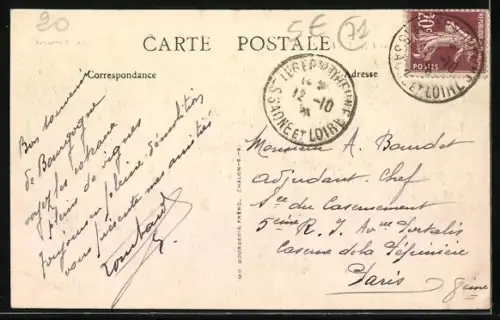 20
5E
71
CARTE POSTALE
Correspondance
Adresse
20c
POSTES
SAONE ET LOIRE
12 -10
Bon souvenir
de Bourgogne
voyez les coteaux
pleins de vignes
toujours en pleine démolition
vous présente mes amitiés
Monsieur A. Baudet
adjudant Chef
Sce du Casernement
5eme R. I. Ave Portalis
Caserne de la Pépinière
Paris 8eme
IMP. BOURGEOIS FRÈRES, CHALON-S-S.